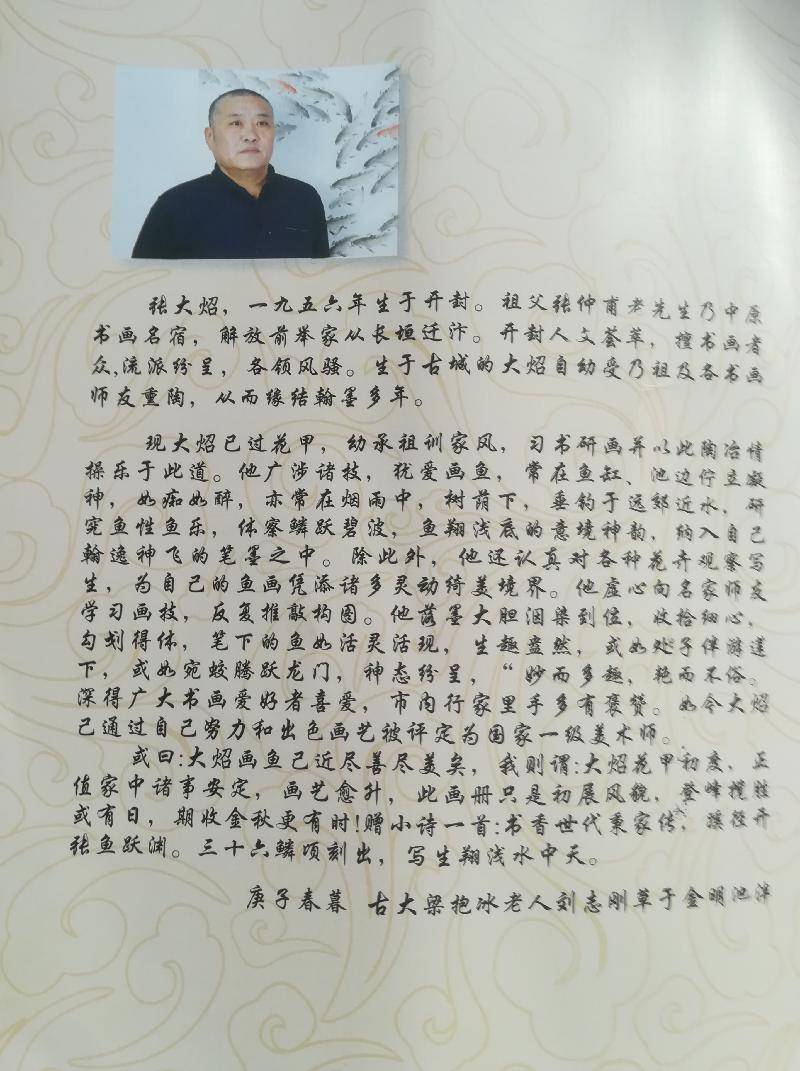 张大炤，一九五六年生于开封。祖父张仲甫老先生乃中原
书画名宿，解放前举家从长垣迁汴。开封人文荟萃，擅书画者
众,流派纷呈，各领风骚。生于古城的大炤自幼受乃祖及各书画
师友熏陶，从而缘结翰墨多年。
现大炤已过花甲，幼承祖训家风，习书研画并以此陶冶情
操乐于此道。他广涉诸技，犹爱画鱼，常在鱼缸、池边伫立凝
神，如痴如醉，亦常在烟雨中，树荫下，垂钓于远郊近水，研
究鱼性鱼乐，体察鳞跃碧波，鱼翔浅底的意境神韵，纳入自己
翰逸神飞的笔墨之中。除此外，他还认真对各种花卉观察写
生，为自己的鱼画凭添诸多灵动绮美境界。他虚心向名家师友
学习画技，反复推敲构图。他落墨大胆洇染到位，收拾细心，
勾划得体，笔下的鱼如活灵活现，生趣盎然，或如处子伴游莲
下，或如宛蛟腾跃龙门，神态纷呈，“妙而多趣，艳而不俗。
深得广大书画爱好者喜爱，市内行家里手多有褒赞。如今大炤
己通过自己努力和出色画艺被评定为国家一级美术师。
或曰:大炤画鱼已近尽善尽美矣，我则谓:大炤花甲初度，正
值家中诸事安定，画艺愈升，此画册只是初展风貌，登峰揽胜
或有日，期收金秋更有时!赠小诗一首:书香世代秉家传，蹊径开
张鱼跃渊。三十六鳞顷刻出，写生翔浅水中天。
庚子春暮 古大梁抱冰老人刘志刚草于金明池泮